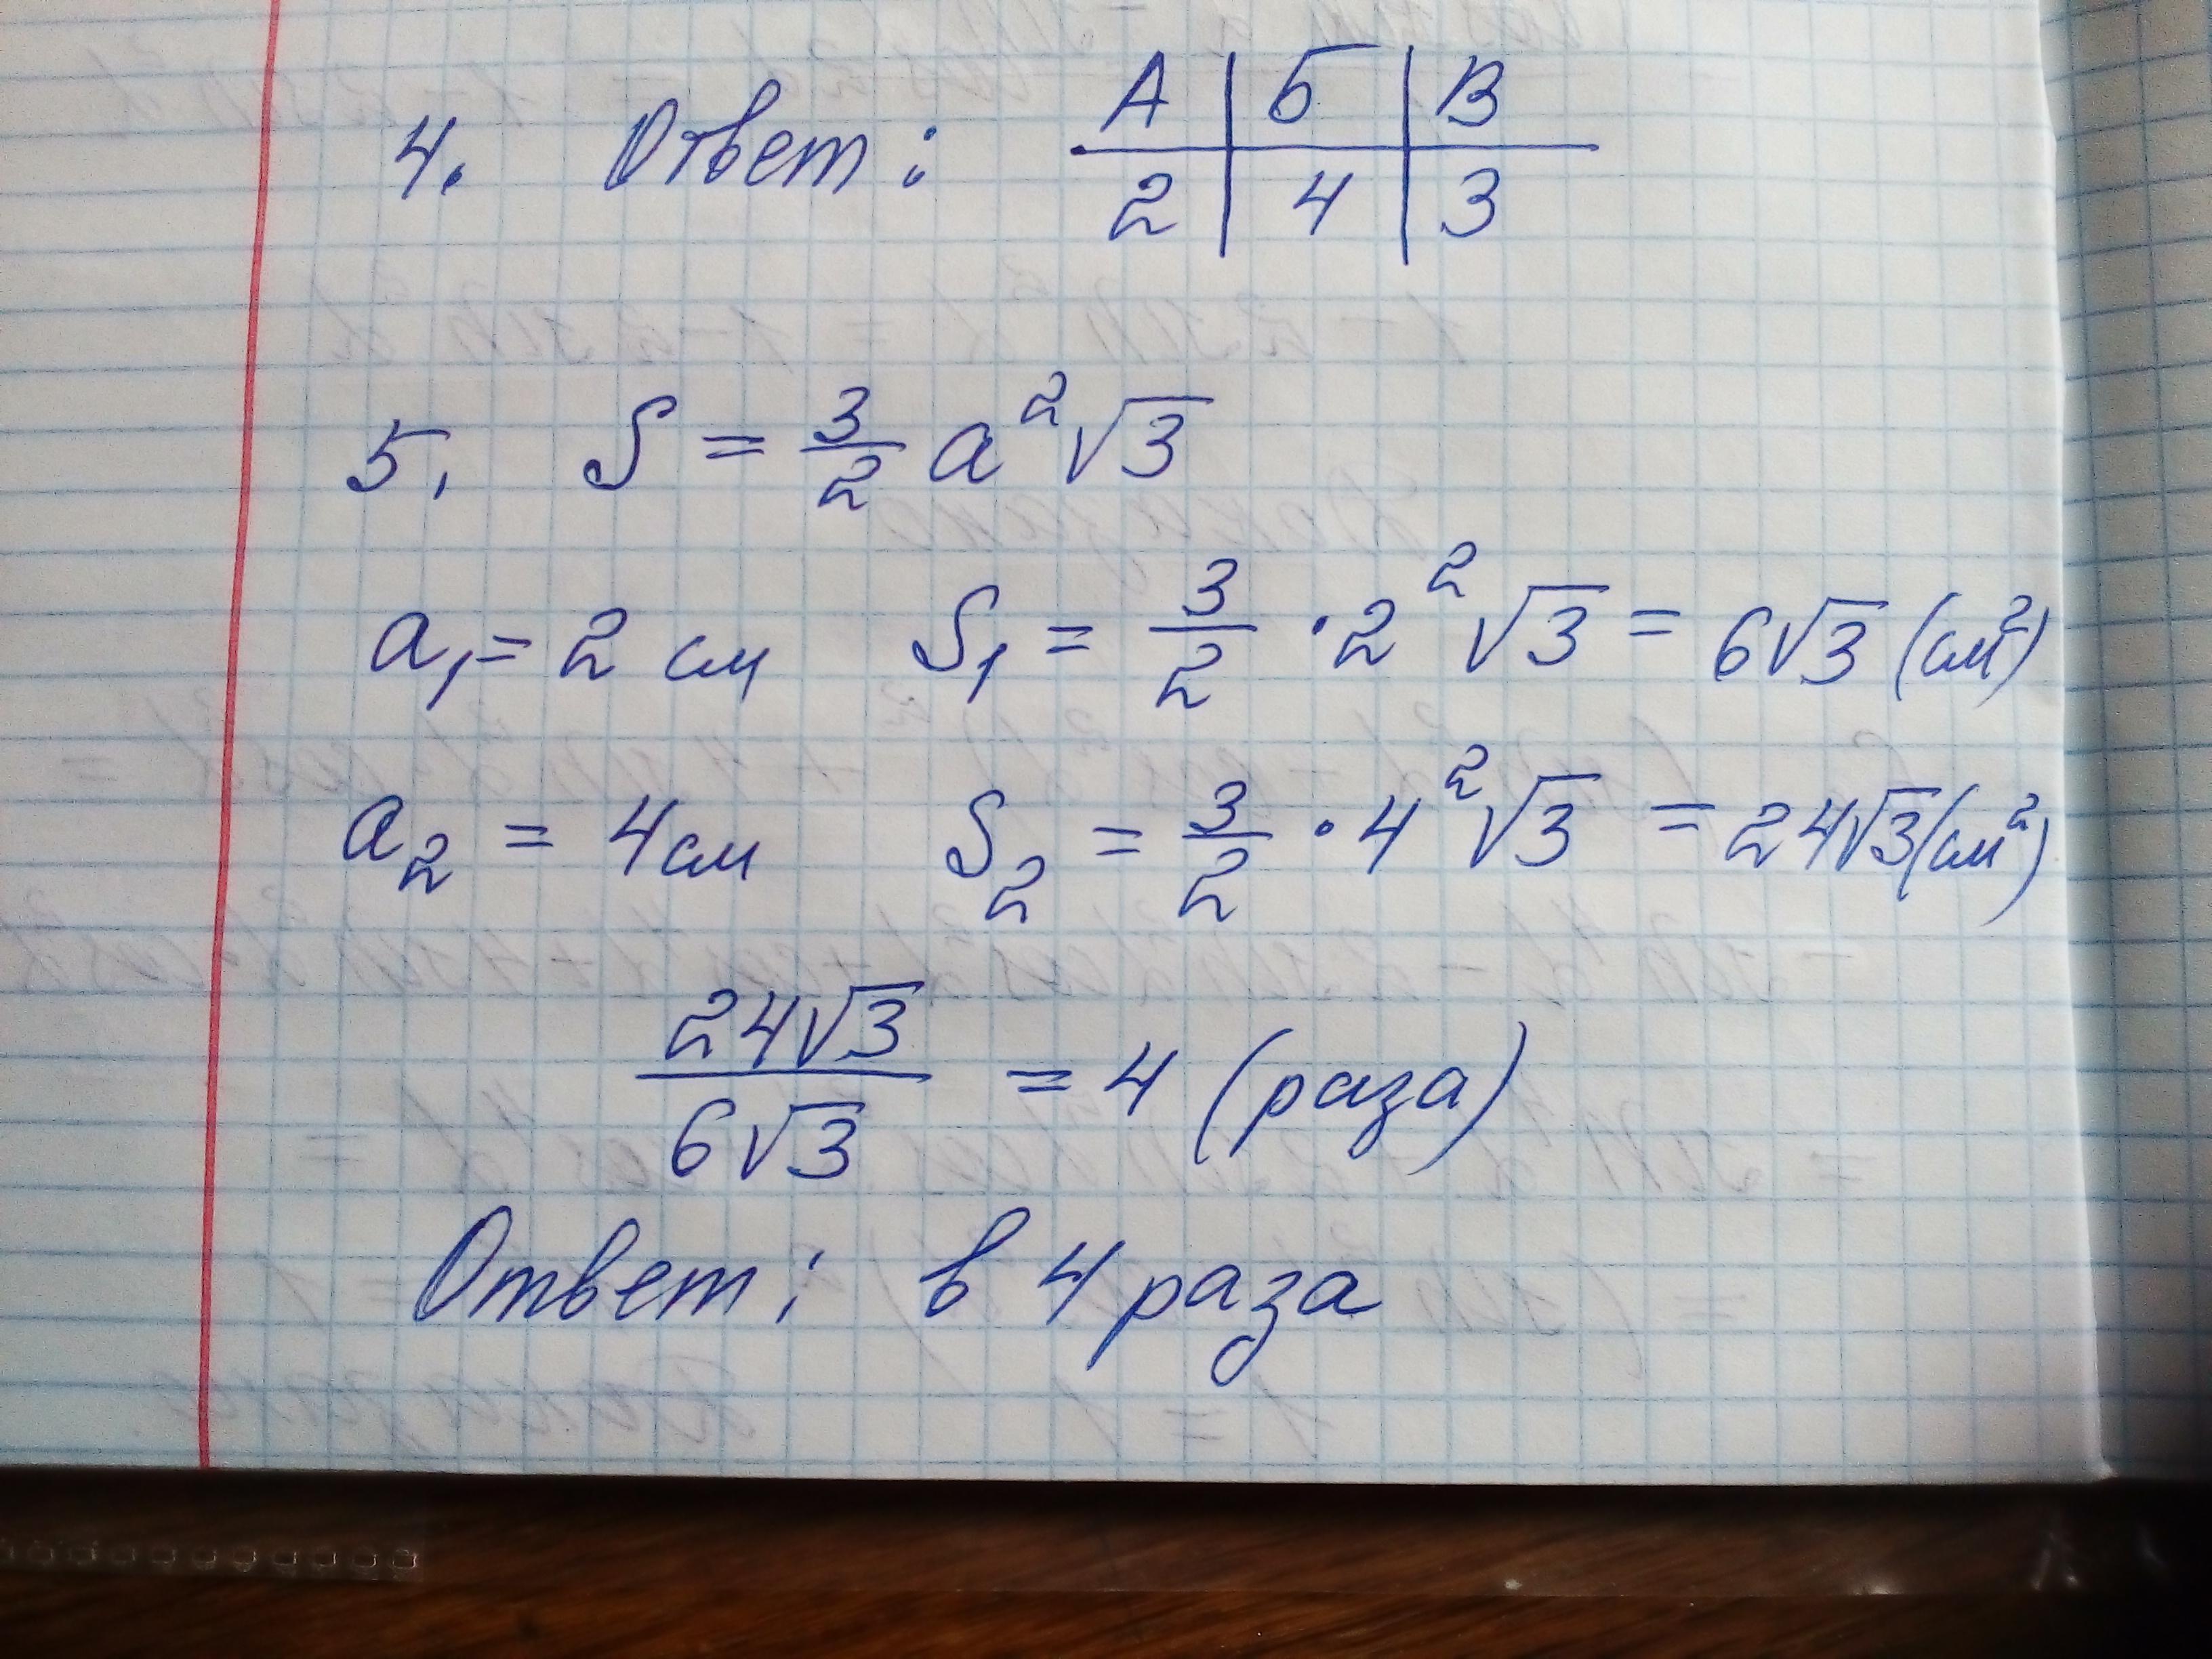 4. Ответ: А | Б | В
2 | 4 | 3
5. S = 3/2 a²√3
a₁ = 2 см S₁ = 3/2 · 2²√3 = 6√3 (см²)
a₂ = 4 см S₂ = 3/2 · 4²√3 = 24√3 (см²)
24√3 / 6√3 = 4 (раза)
Ответ: в 4 раза